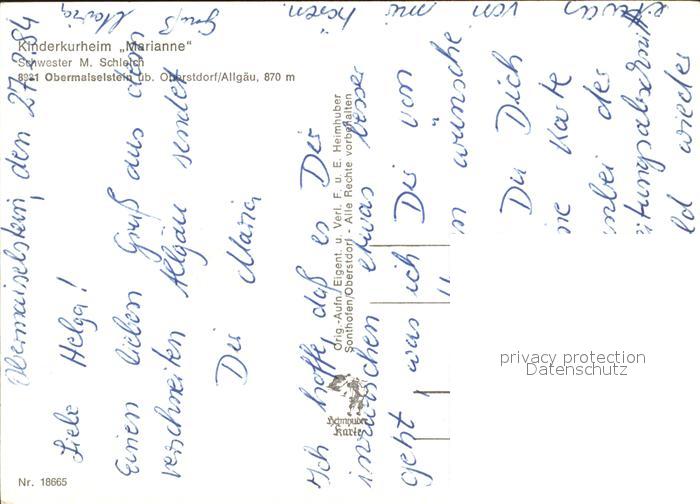 Kinderkurheim „Marianne"
Schwester M. Schleich
8981 Obermaiselstein üb. Oberstdorf/Allgäu, 870 m
Obermaiselstein, den 27.2.84
Liebe Helga!
Einen lieben Gruß aus dem
verschneiten Allgäu sendet
Dir Maria
Ich hoffe, daß es Dir
inzwischen etwas besser
geht, was ich Dir von
wünsche
Du Dich
Karte
bei der
wieder
etwas von mir hören.
Gruß Maria
Orig.-Aufn. Eigent. u. Verl. F. u. E. Heimhuber
Sonthofen/Oberstdorf - Alle Rechte vorbehalten
Heimhuber
Karte
Nr. 18665
privacy protection
Datenschutz